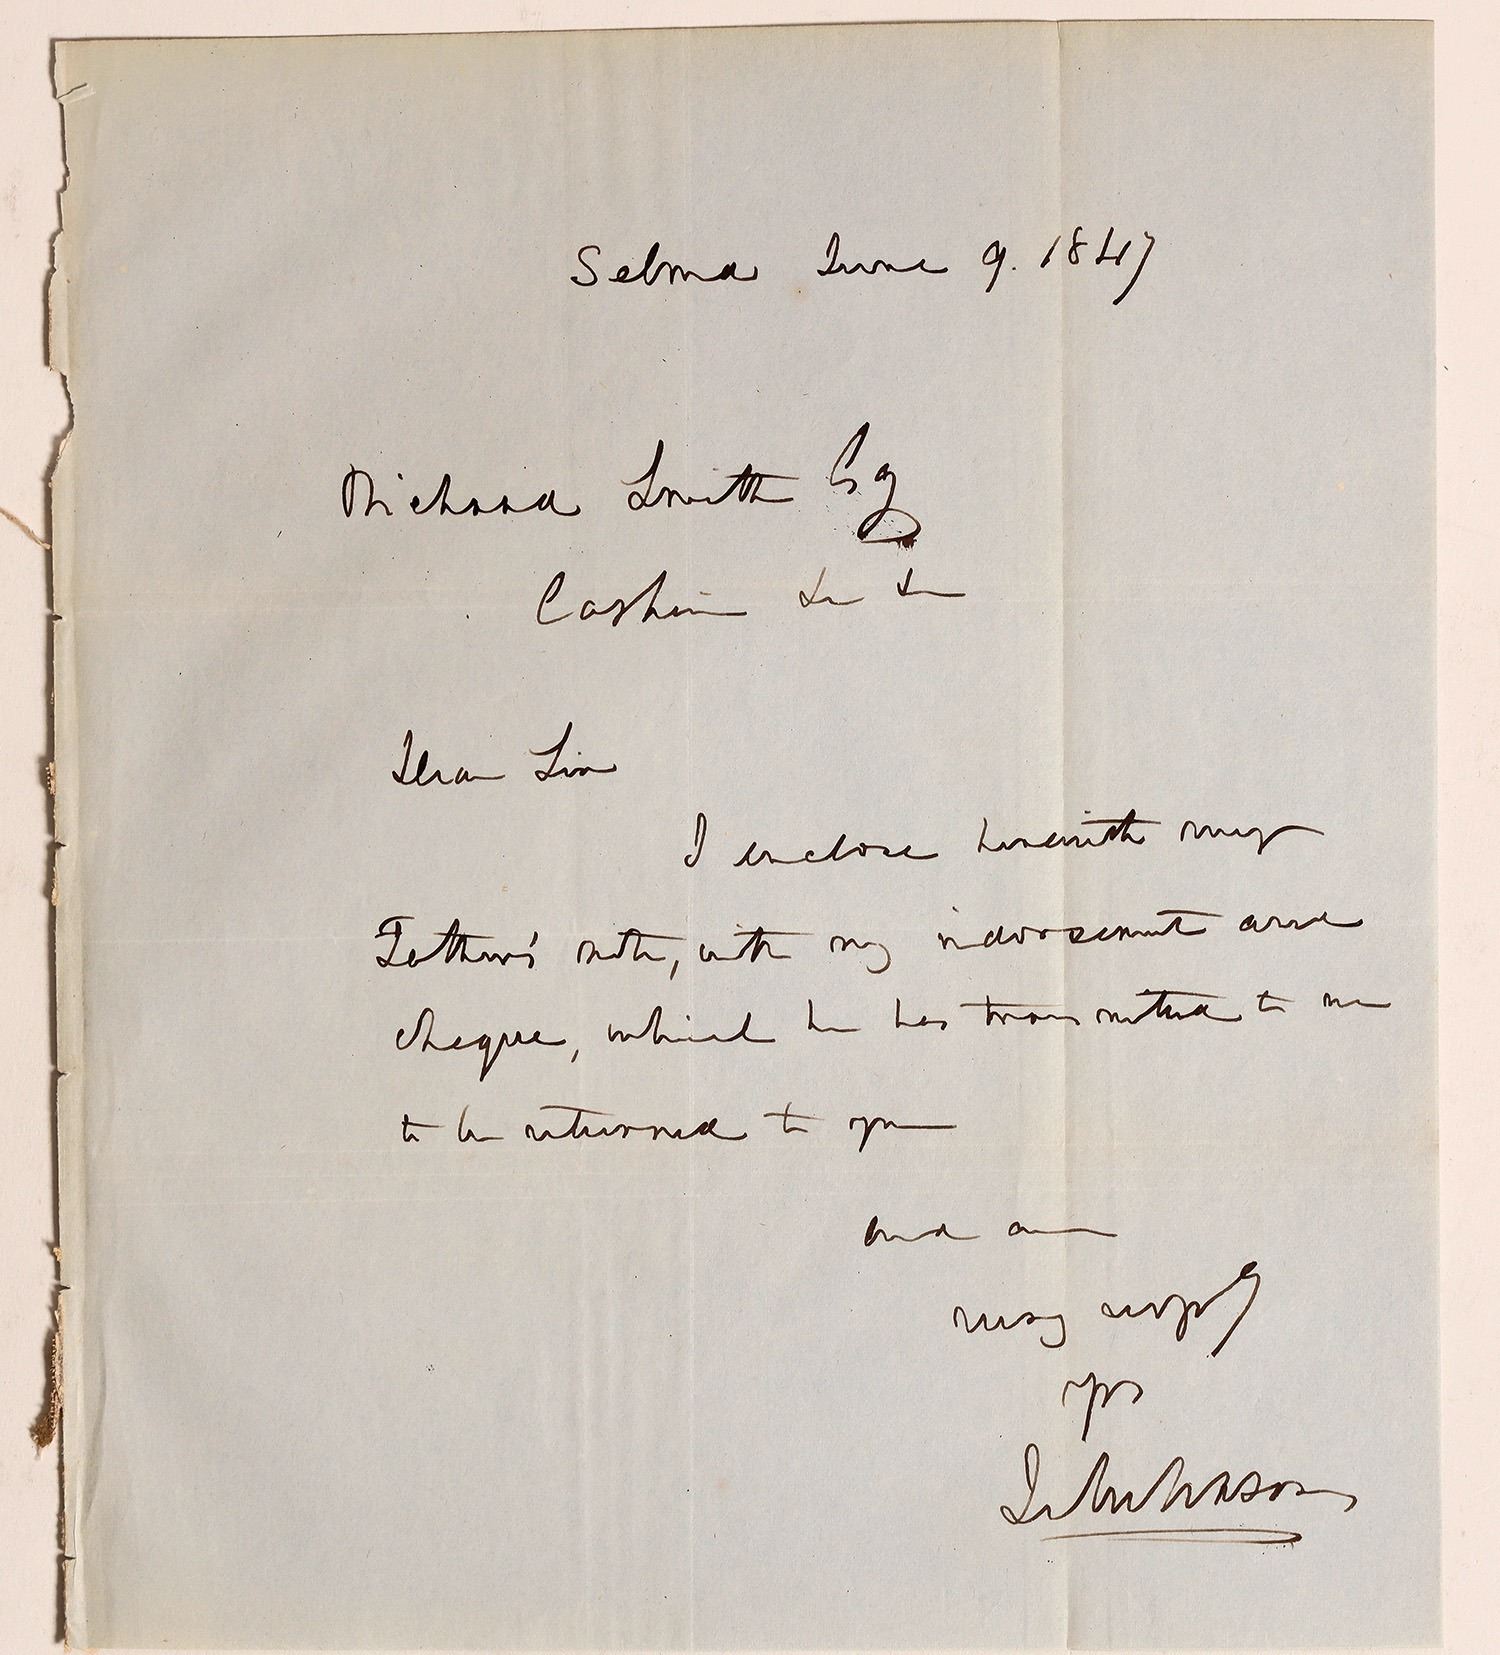 Selma June 9. 1847
Richard Smith Esq
Cashier &c &c
Dear Sir
I enclose herewith my
Father's note, with my indorsement and
cheque, which he has transmitted to me
to be returned to you
and am
very respy
yrs